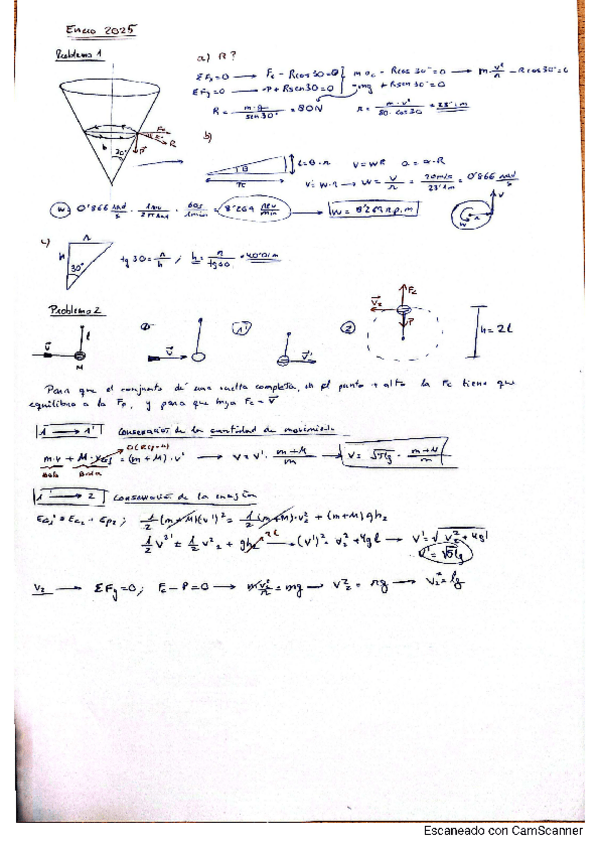 Enero 2025
Problema 1
a) R?
ΣFx=0 → Fc - Rcos30=0 } m·ac - Rcos30°=0 → m·v²/r - Rcos30°=0
ΣFy=0 → -P+Rsen30=0 } -mg + Rsen30°=0
R = m·g / sen30° = 80N
r = m·v² / 80·cos30 = 23'1m
Fc
R
P
h
30°
b)
θ
r
l=θ·r
V=wR
a=α·R
V=w·r → w = V/r = 20m/s / 23'1m = 0'866 rad/s
w
r
v
w: 0'866 rad/s · 1rev/2π rad · 60s/1min = 8'269 rev/min → w = 8'269 r.p.m
c)
r
h
30°
tg30 = r/h ; h = r/tg30 = 40'01m
Problema 2
v
l
M
1
V
1'
v'
2
Fc
V2
P
h=2l
Para que el conjunto dé una vuelta completa, en el punto + alto la Fc tiene que
equilibrar a la Fp, y para que haya Fc = V
1 → 1' Conservación de la cantidad de movimiento
m·v + M·v = (m+M)·v' → V = V'·(m+M)/m → V = √5lg · (m+M)/m
Bala
1' → 2 Conservación de la energía
Ec1' = Ec2 + Ep2 ; 1/2 (m+M)(v')² = 1/2 (m+M)·v2² + (m+M)gh2
1/2 v'² = 1/2 v2² + gh2 2l → (v')² = v2² + 4gl → v' = √v2² + 4gl
v' = √5lg
V2 → ΣFy=0 ; Fc - P=0 → mv2²/r = mg → v2² = rg → v2² = lg
Escaneado con CamScanner